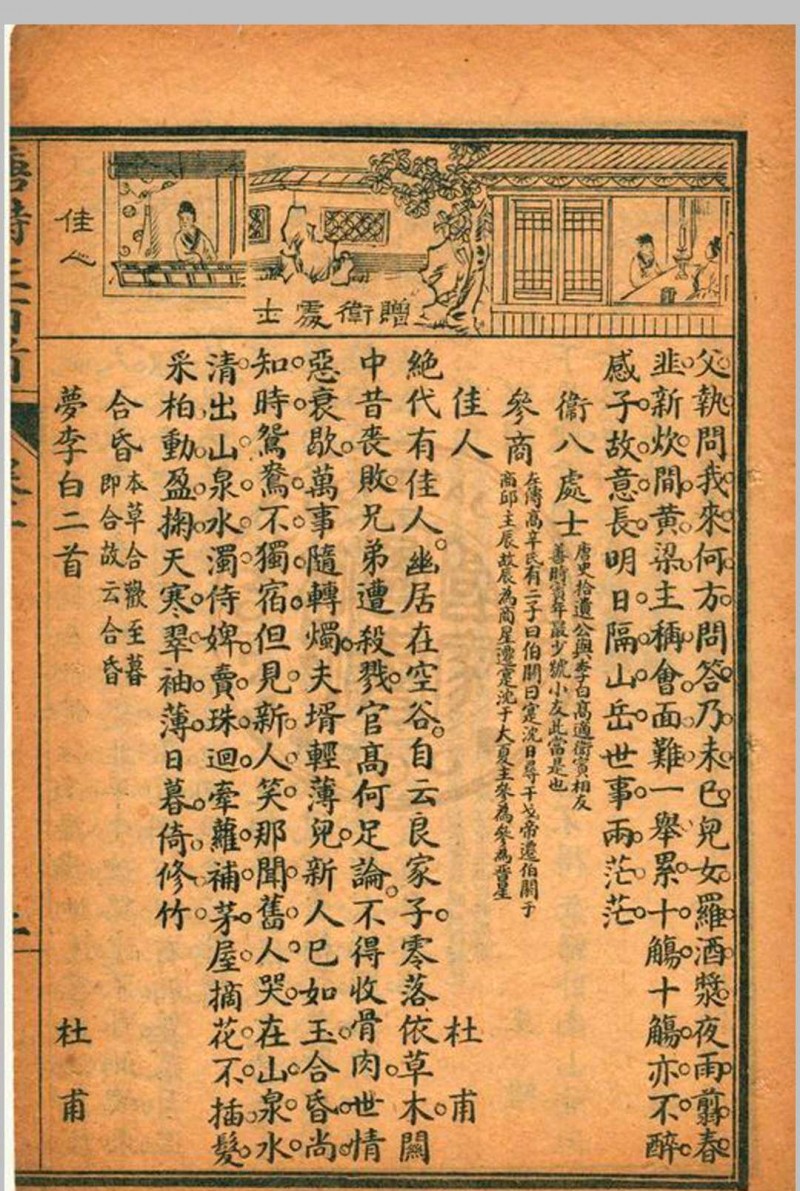 贈衛處士
佳人
父執問我來何方問答乃未已兒女羅酒漿夜雨翦春
韭新炊間黃粱主稱會面難一舉累十觴十觴亦不醉
感子故意長明日隔山岳世事兩茫茫
衞八處士唐史拾遺公與李白高適衞賓相友
善時賓年最少號小友此當是也
參商左傳高辛氏有二子曰伯閼曰寔沈日尋干戈帝遷伯閼于
商邱主辰故辰為商星遷寔沈于大夏主參為參為晉星
佳人 杜甫
絕代有佳人幽居在空谷自云良家子零落依草木關
中昔喪敗兄弟遭殺戮官高何足論不得收骨肉世情
惡衰歇萬事隨轉燭夫壻輕薄兒新人已如玉合昏尚
知時鴛鴦不獨宿但見新人笑那聞舊人哭在山泉水
清出山泉水濁侍婢賣珠迴牽蘿補茅屋摘花不插髮
采柏動盈掬天寒翠袖薄日暮倚修竹
合昏本草合歡至暮
即合故云合昏
夢李白二首 杜甫